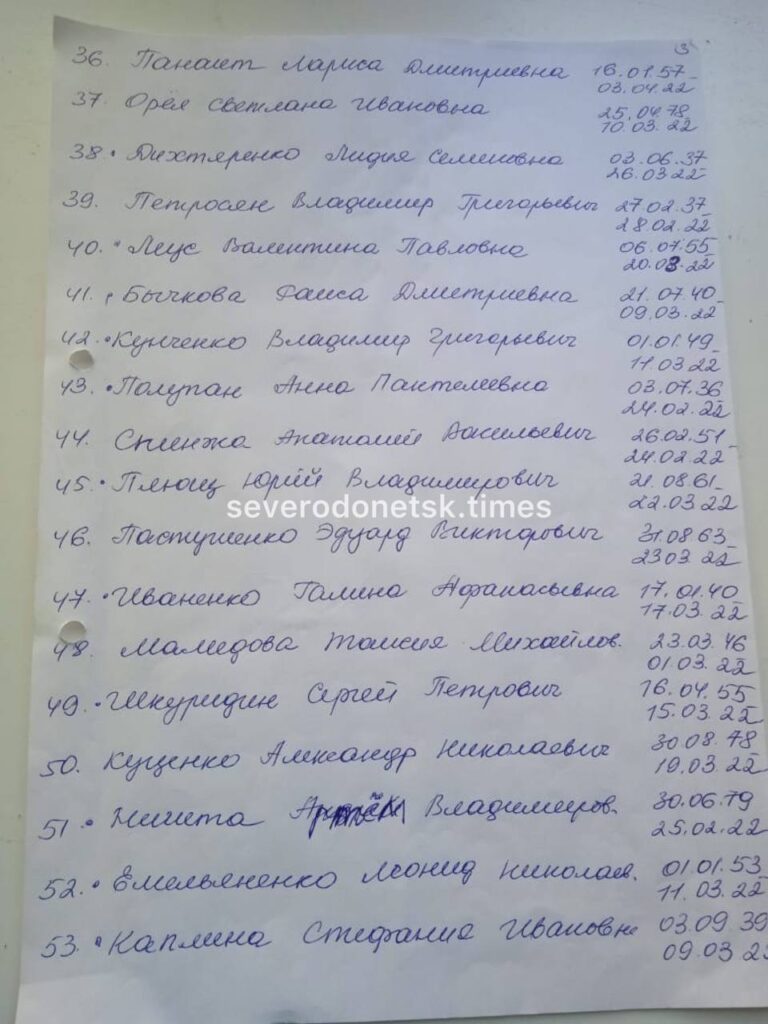 3
36. Панает Лариса Дмитриевна 16.01.57-
03.04.22
37. Орёл Светлана Ивановна 25.04.78-
10.03.22
38. Дихтяренко Лидия Семеновна 03.06.37
26.03 22
39. Петросян Владимир Григорьевич 27.02.37
28.02.22
40. Леус Валентина Павловна 06.07.55
20.03.22
41. Бычкова Раиса Дмитриевна 21.07.40-
09.03.22
42. Кунченко Владимир Григорьевич 01.01.49-
11.03 22
43. Полупан Анна Пантелеевна 03.07.36
24.02.22
44. Анатолий Васильевич 26.02.51-
24.02.22
45. Плющ Юрий Владимирович 21.08.61-
22.03 22
severodonetsk.times
46. Пастушенко Эдуард Викторович 31.08.63-
23 03. 22
47. Иваненко Галина Афанасьевна 17.01.40
17.03.22
48. Мамедова Таисия Михайлов. 23.03.46
01.03.22
49. Шкуридин Сергей Петрович 16.04.55
15.03.22
50. Куценко Александр Николаевич 30.08.78
19.03.22
51. Артём Владимиров. 30.06.79
25.02.22
52. Емельяненко Леонид Николаев. 01.01.53-
11.03.22
53. Каплина Стефания Ивановн 03.09.39
09.03 22